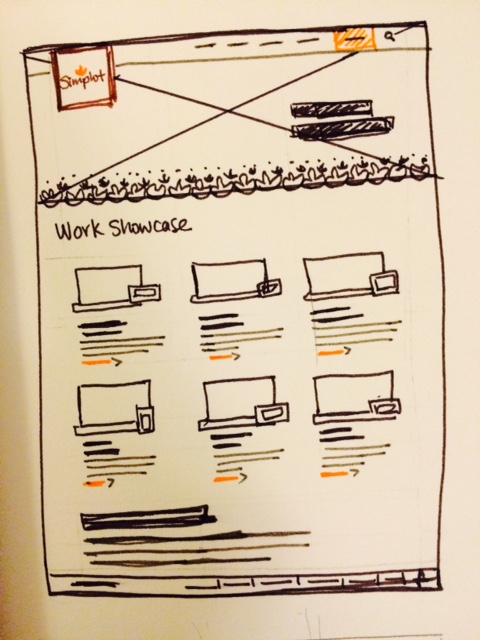 Simplot
Work Showcase